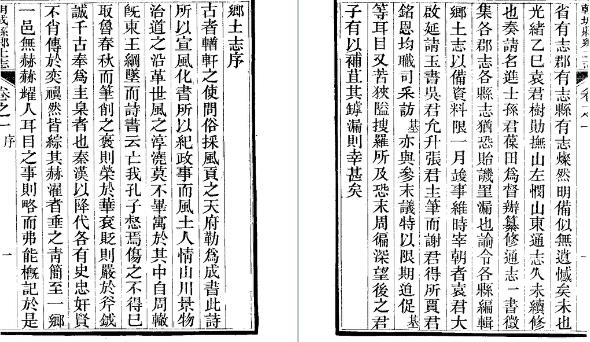 鄉土志序
古者輶軒之使問俗採風貢之天府勒為成書此詩
所以宣風化書所以紀政事而風土人情山川景物
治道之沿革世風之淳澆莫不畢寓於其中自周轍
既東王綱墜而詩書云亡我孔子惄焉傷之不得已
取魯春秋而筆創之褒則榮於華袞貶則嚴於斧鉞
誠千古奉為圭臬者也秦漢以降代各有史忠奸賢
不肖傳於奕禩然皆綜其赫濯者垂之青簡至一鄉
一邑無赫赫耀人耳目之事則略而弗能概記於是
卷之一 序 一
省有志郡有志縣有志燦然明備似無遺憾矣未也
光緒乙巳袁君樹勛撫山左憫山東通志久未續修
也奏請名進士孫君葆田為督辦纂修通志一書徵
集各郡志各縣志猶恐貽譏罣漏也諭令各縣編輯
鄉土志以備資料限一月竣事維時宰朝者袁君大
啟延請玉書吳君允升張君主筆而謝君得所賈君
銘恩均職司采訪基亦與參末議特以限期迫促基
等耳目又苦狹隘搜羅所及恐未周徧深望後之君
子有以補苴其罅漏則幸甚矣